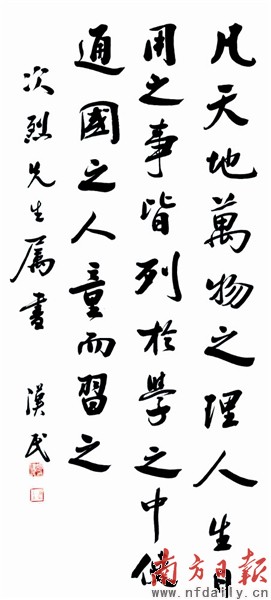 凡天地萬物之理人生日
用之事皆列於學之中
通國之人童而習之
次烈先生屬書 漢民
南方日報
www.nfdaily.cn